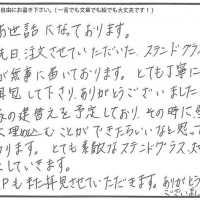 自由にお書き下さい。(一言でも文章でも絵でも大丈夫です!)
お世話になっております。
先日、注文させていただいた、ステンドグラス
が無事に届いております。とても丁寧に
梱包して下さり、ありがとうございました。
家の建替えを予定しており、その時に壁
に埋め込むことができたらいいなと思って
おります。とても素敵なステンドグラス、大
にしていきます。
HPもまた拝見させていただきます。ありがとう
ございました